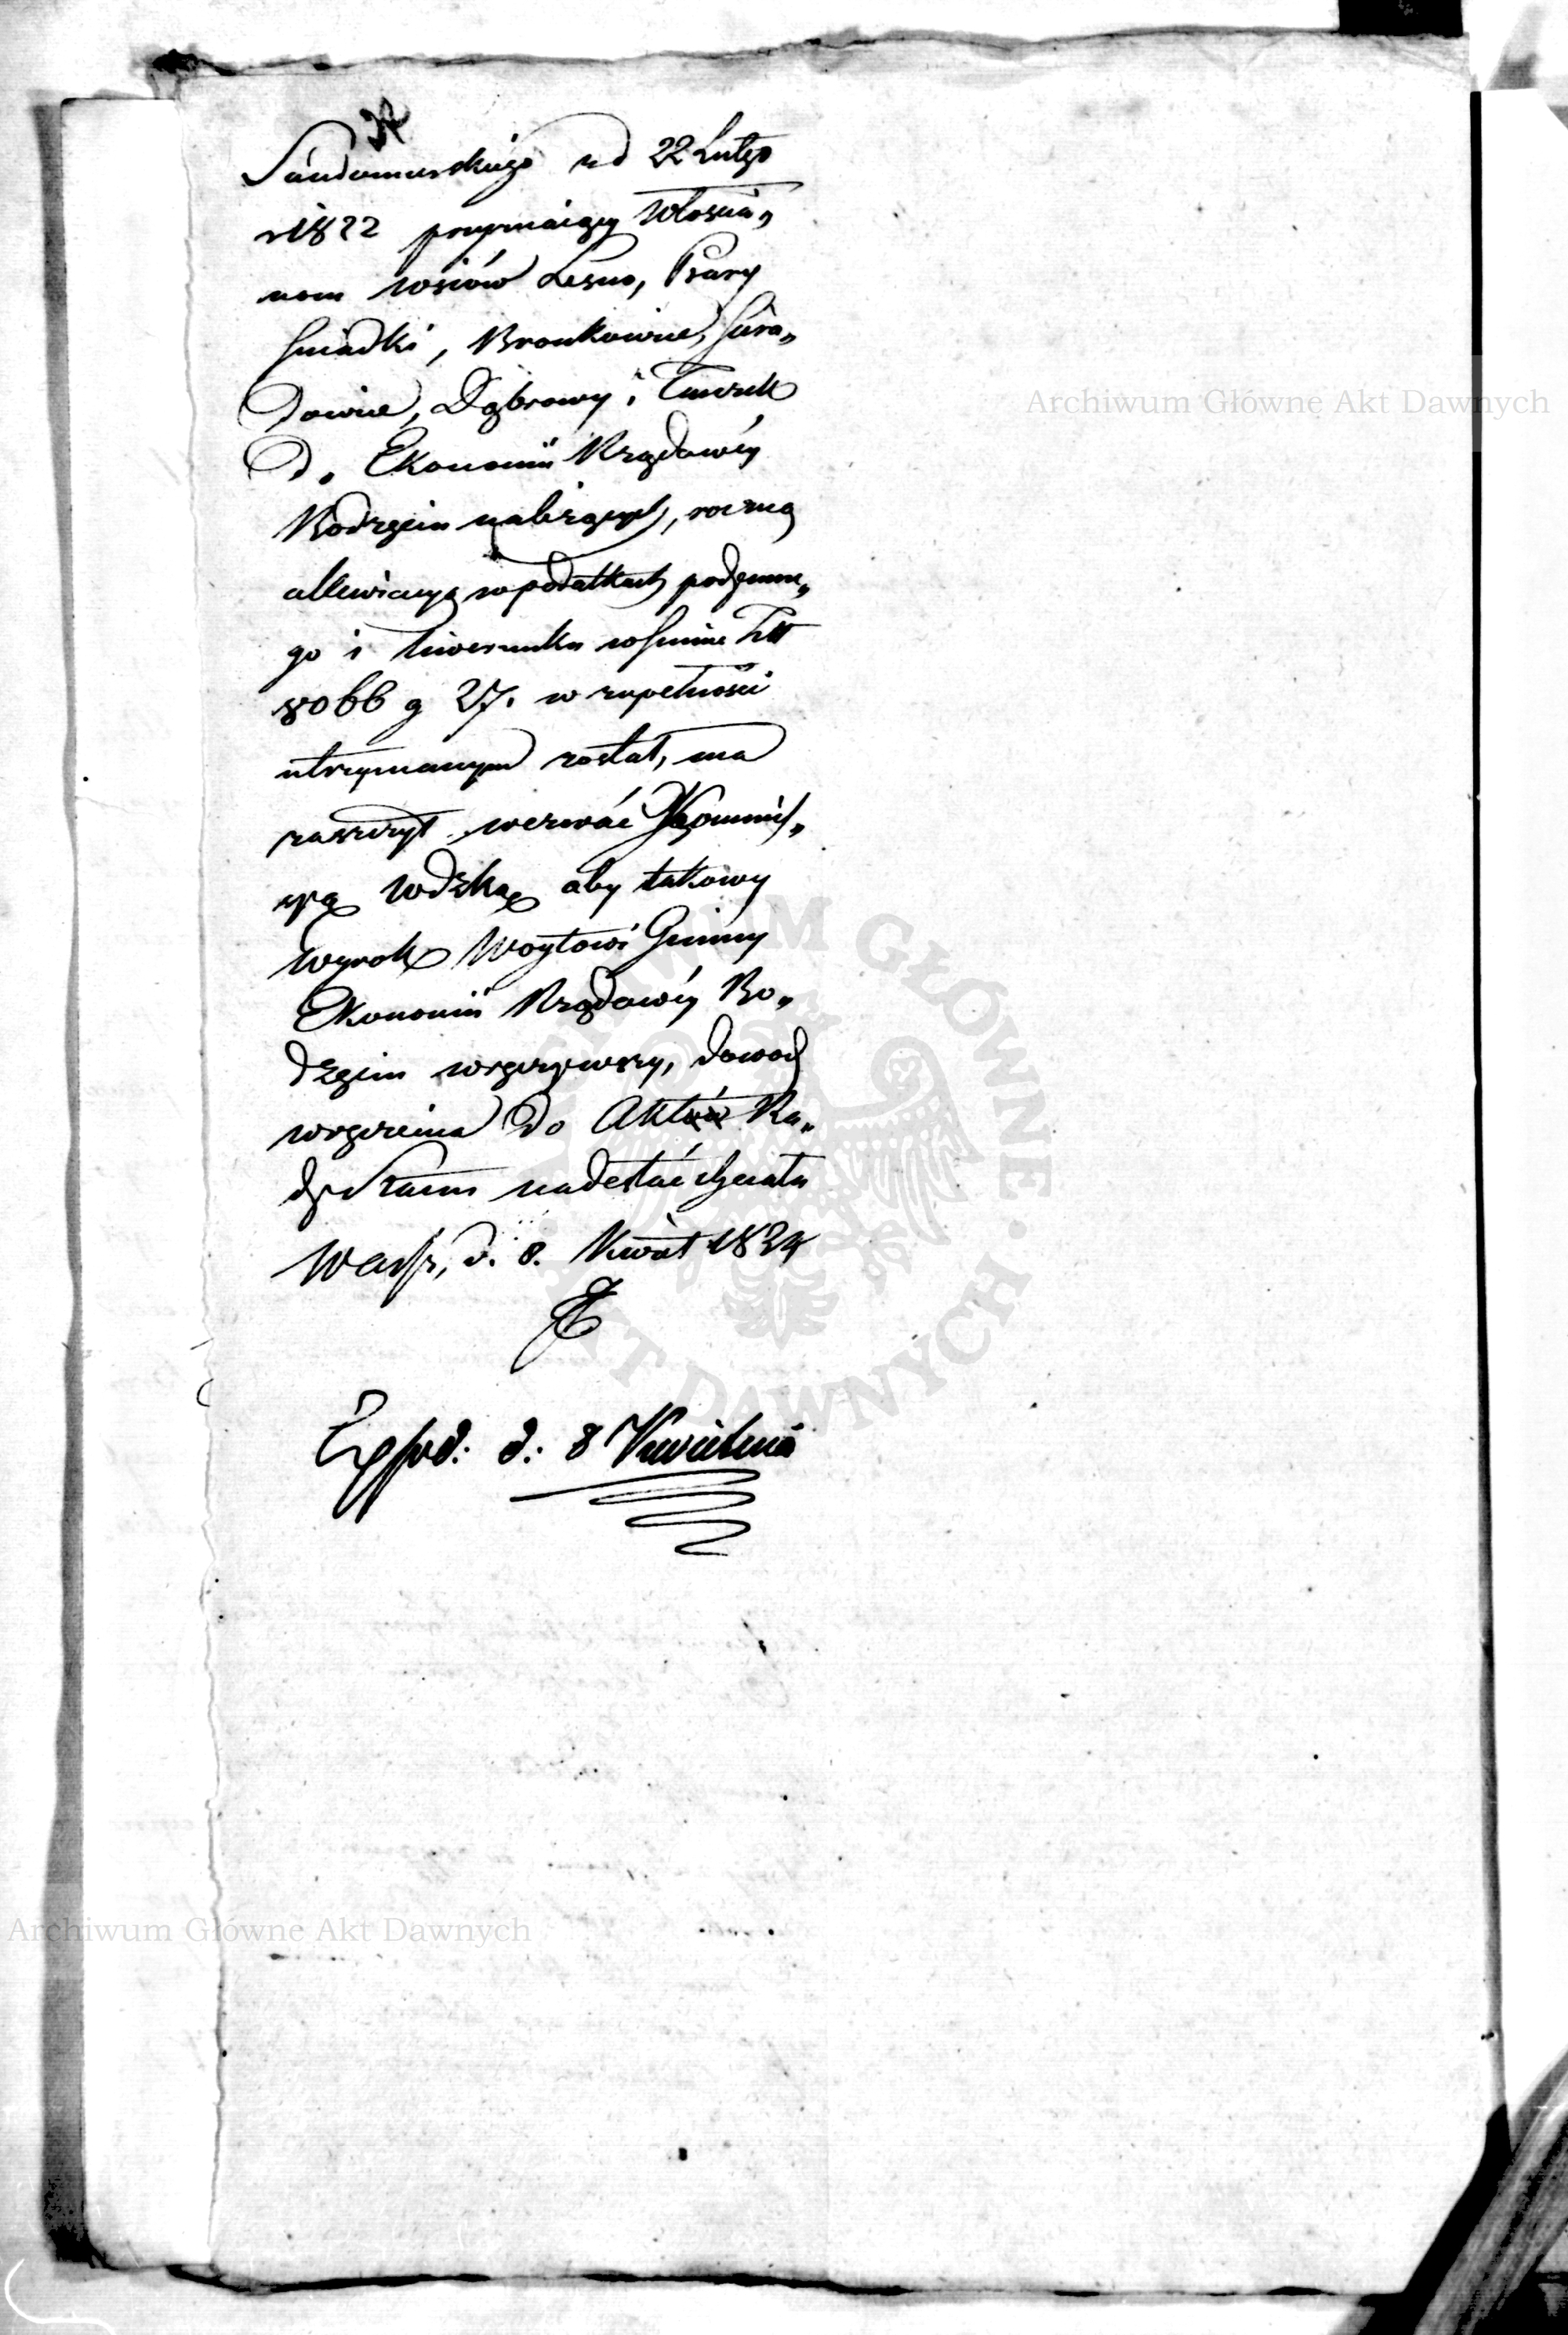 Sandomirskiego z d 22 Lutego
r 1822 przyznaiący Włościa„
nom wsiów Leśna, Psary
Śniadki, Bronkowice, Siera„
dowice, Dąbrowy i
do Ekonomii Rządowéy
Bodzęcin należących, roczną
allewiacyą w podatkach podymne„
go i liwerunku w summie Złt
8066 g 27. w zupełności
utrzymanym został, ma
zaszczyt wezwać Kommis„
syą Wdzką aby takowy
Wyrok Woytowi Gminy
Ekonomii Rządowéy Bo„
dzęcin wręczywszy, dowod
wręczenia do Akt Ra„
dy Stanu nadesłać chciała
Warsz, d. 8. Kwiet 1824
Exped: d: 8 Kwietnia
Archiwum Główne Akt Dawnych
ARCHIWUM GŁÓWNE · AKT DAWNYCH ·
Archiwum Główne Akt Dawnych